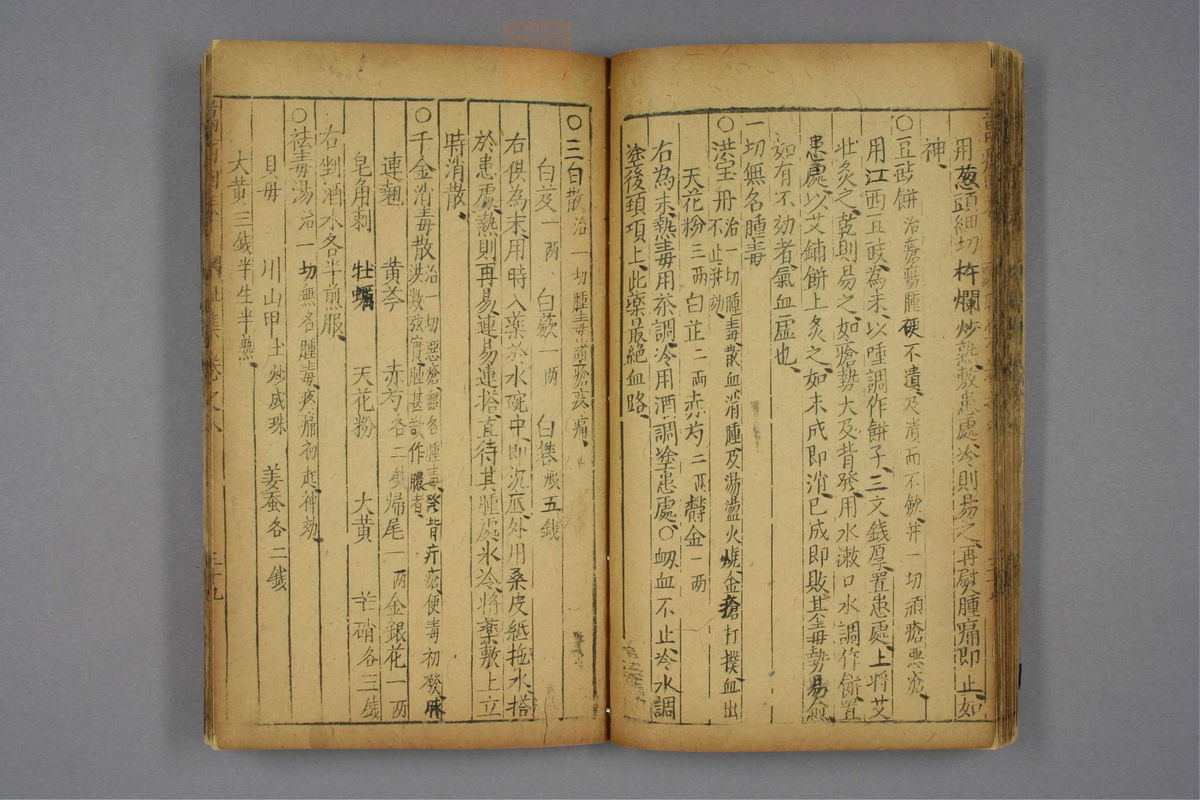 用葱頭細切杵爛炒熱敷患處冷則易之再熨腫痛即止如
神
○豆豉餅 治瘡瘍腫硬不潰及潰而不斂并一切頑瘡惡瘡
用江西豆豉為末以唾調作餅子三文錢厚置患處上將艾
壮灸之乾則易之如瘡勢大及背發用水漱口水調作餅置
患處以艾鋪餅上灸之如未成即消已成即敗其毒勢易愈
如有不効者氣血虛也
一切無名腫毒
○洪宝丹 治一切腫毒散血消腫及湯盪火燒金瘡打撲血出
不止并効
天花粉三両 白芷二両 赤芍二両 欝金一两
右為末熱毒用茶調冷用酒調塗患處○衂血不止冷水調
塗後頚項上此藥最絶血路
○三白散 治一切腫毒並瘡疼痛
白芨一两 白蘞一两 白礬 五錢
右俱為末用時入藥於水碗中即沉底外用桑皮紙拖水搭
於患處熱則再易連易連搭直待其腫處氷冷將藥敷上立
時消散
○千金消毒散 治一切惡瘡無名腫毒發背疔瘡便毒初發脉
洪数弦實腫甚欲作膿者
連翹 黄芩 赤芍各二錢 歸尾一两 金銀花一两
皂角刺 牡蠣 天花粉 大黄 芒硝各三錢
右剉酒水各半煎服
○祛毒湯 治一切無名腫毒疼痛初起神効
貝毋 川山甲土炒成珠 姜蚕各二錢
大黄三錢半生半熟
三十九